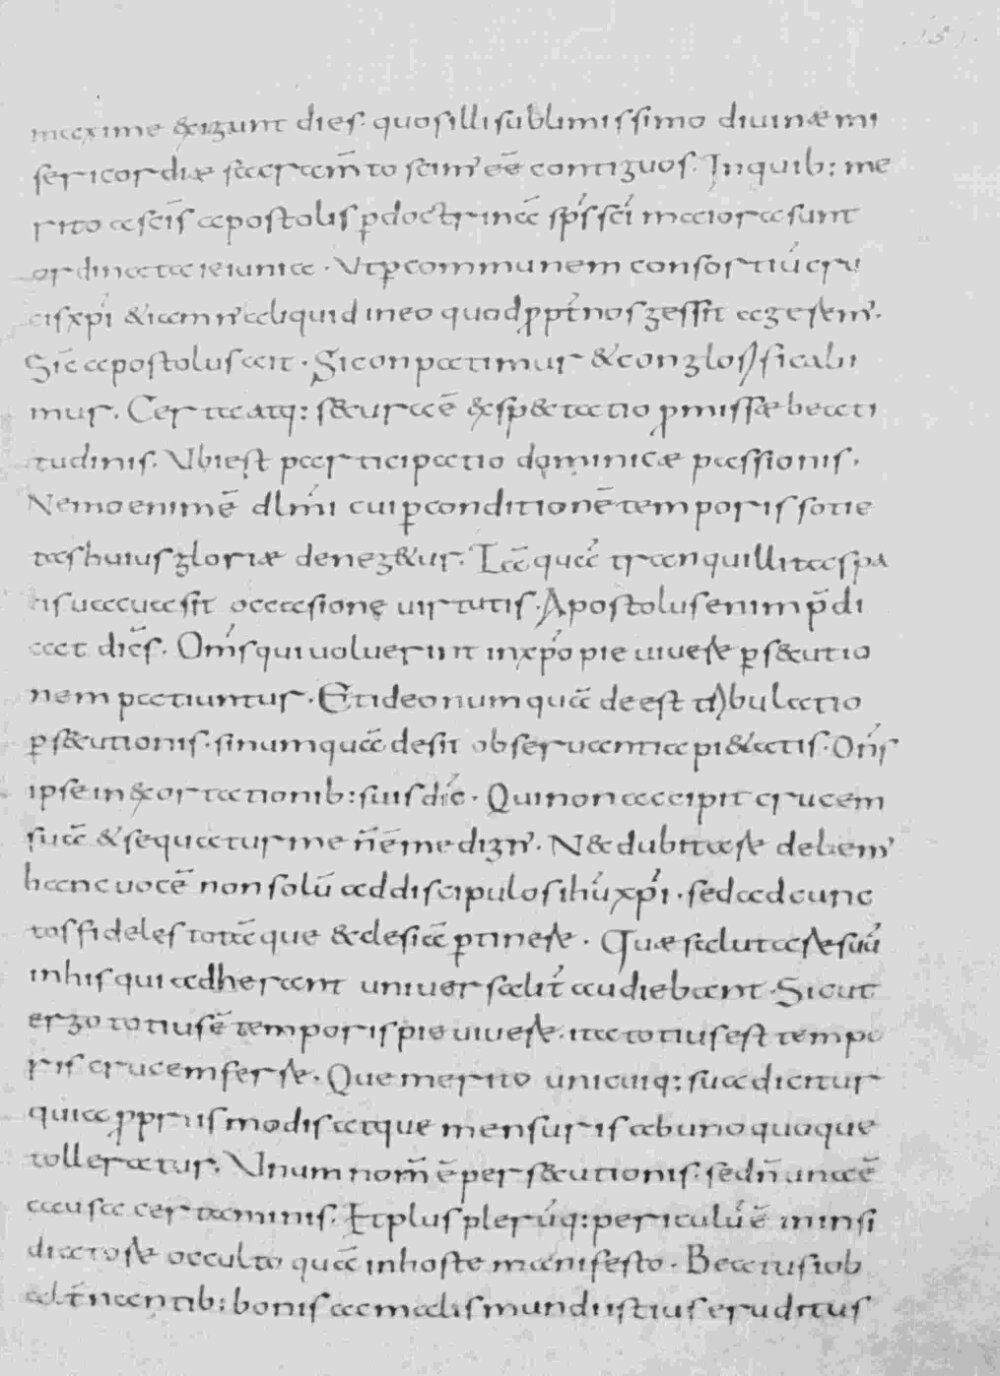 maxime exigunt dies. quos illi sublimissimo diuinæ mi
sericordiæ sacram̄to scim' eē contiguos. Inquib: me
rito a scīs apostolis p̲doctrinā sp̄s sc̄i maiora sunt
ordinata ieiunia. Vt p̲communem consortiū cru
cis xp̄i &iam n' aliquid in eo quod p̲pt' nos gessit ageřem'.
Sic̄ apostolus ait. Si conpatimur & conglorificabi
mur. Certa atq: s&ura ē exsp&tatio p̲missæ beati
tudinis. Vbi est participatio dominicæ passionis.
Nemo enim ē dlm̄i cui p̲conditionē temporis sotie
tas huius gloriæ deneg&ur. Tā quā tranquillitas pa
cis uacua sit occasione uirtutis. Apostolus enim p̄di
cat dicēs. Om̄s qui uoluerint in xp̄o pie uiuere p̲s&utio
nem patiuntur. Et ideo numquā deest tribulatio
p̲s&utionis. si numquā desit obseruantia pi&atis. Dn̄s
ipse in exortationib: suis dic̄. Qui non accipit crucem
suā & sequatur me n̄ ē me dign'. N& dubitare debem'
hanc uocē non solū ad discipulos ihū xp̄i. sed ad cunc
tos fideles totāque &clesiā p̲tinere. Quæ salutare suū
in his qui aderant uniuersalit' audiebant. Sicut
ergo totius ē temporis pie uiuere. ita totius est tempo
ris crucem ferre. Que merito unicuiq: sua dicitur
quia p̲priis modis atque mensuris ab uno quoque
tolleratur. Vnum nom̄ ē pers&utionis. sed n̄ una ē
causa certaminis. Et plus plerūq: periculū ē in insi
diatore occulto quā in hoste manifesto. Beatus iob
alt̄nantib: bonis ac malis mundi istius eruditus